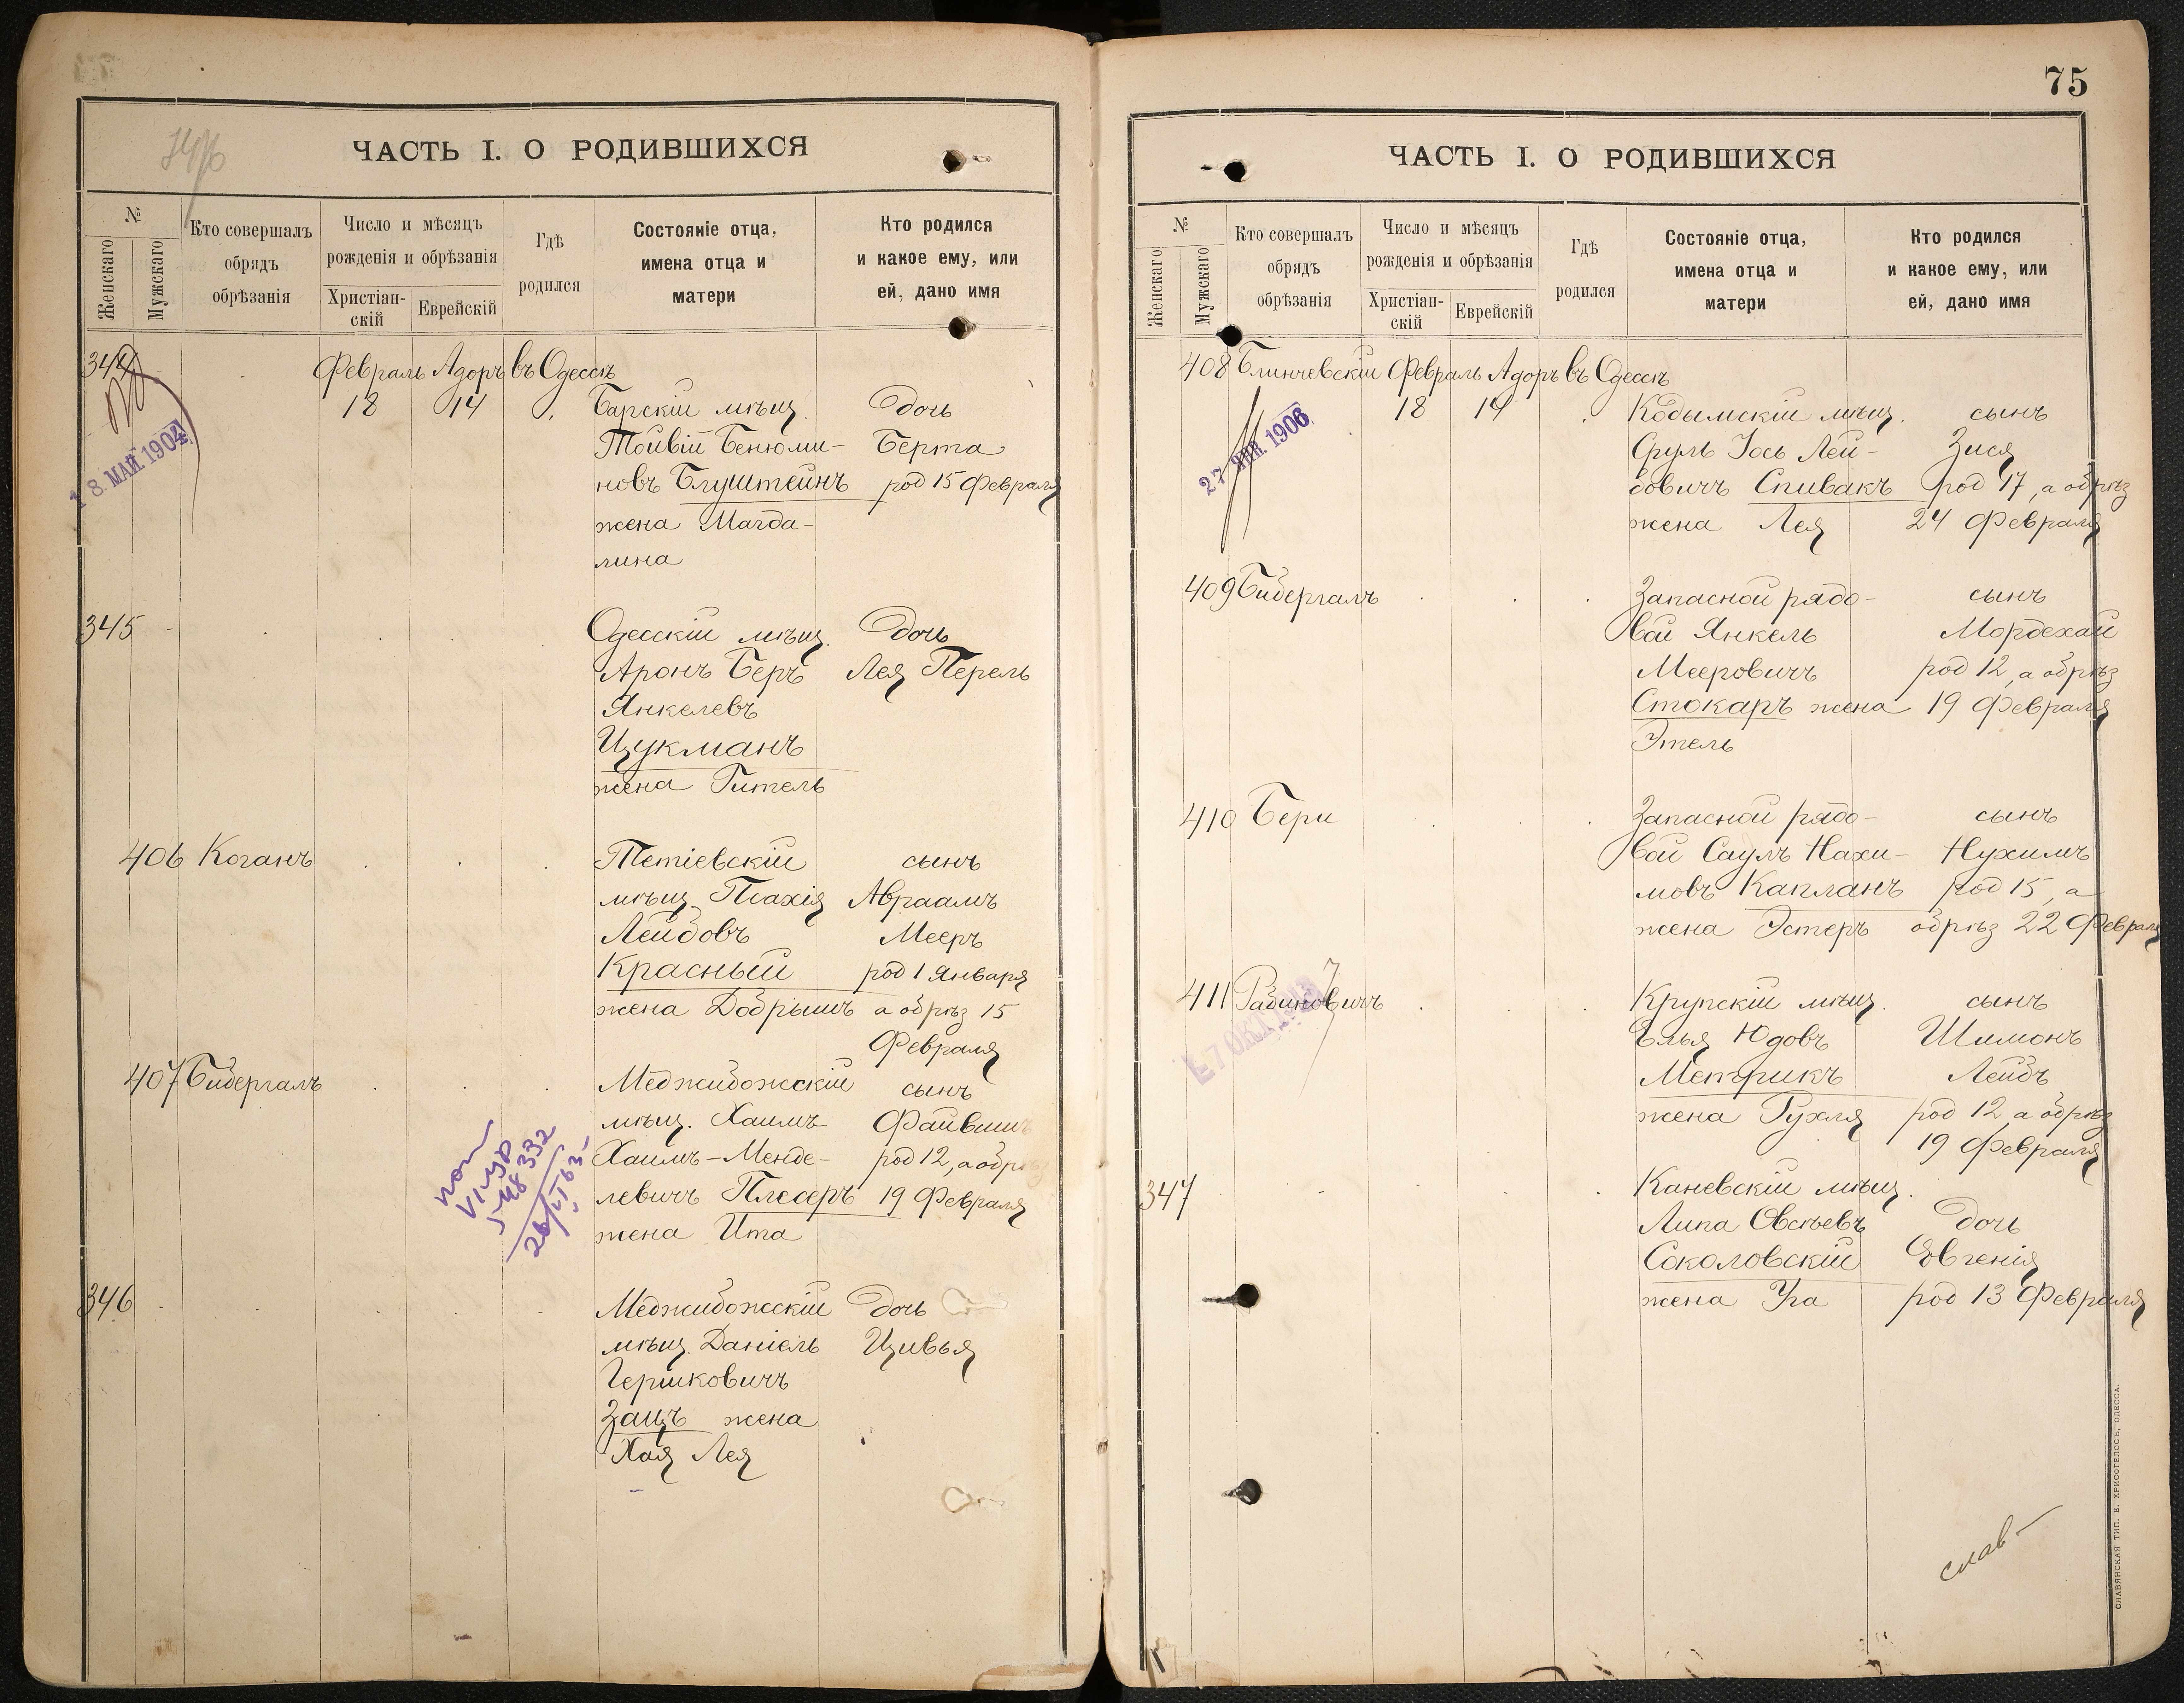 ЧАСТЬ I. О РОДИВШИХСЯ
№
Женскаго
Мужскаго
Кто совершалъ
обрядъ
обрѣзанія
Число и мѣсяцъ
рожденія и обрѣзанія
Христіан-
скій
Еврейскій
Гдѣ
родился
Состояніе отца,
имена отца и
матери
Кто родился
и какое ему, или
ей, дано имя
344
Февраль Адоръ въ Одессѣ
18 14 Барскій мѣщ. дочь
Тойвій Бенюми- Берта
новъ Блуштейнъ род 15 Февраля
жена Магда-
лина
18. МАЙ. 1904
345 Одесскій мѣщ. дочь
Аронъ Беръ Лея Перель
Янкелевъ
Цукманъ
жена Гитель
406 Коганъ Тетіевскій сынъ
мѣщ. Псахія Авраамъ
Лейбовъ Мееръ
Красный род 1 Января
жена Добрышъ а обрѣз 15
Февраля
407 Бибергалъ Меджибожскій сынъ
мѣщ. Хаимъ Файвиш
Хаимъ-Менде- род 12, а обрѣ
левичъ Плесеръ 19 Февраля
жена Ита
346 Меджибожскій дочь
мѣщ. Даніель Цивья
Гершковичъ
Зацъ жена
Хая Лея
75
ЧАСТЬ I. О РОДИВШИХСЯ
№
Женскаго
Мужскаго
Кто совершалъ
обрядъ
обрѣзанія
Число и мѣсяцъ
рожденія и обрѣзанія
Христіан-
скій
Еврейскій
Гдѣ
родился
Состояніе отца,
имена отца и
матери
Кто родился
и какое ему, или
ей, дано имя
408 Блинчевскій Февраль Адоръ въ Одессѣ
18 14 Кодымскій мѣщ. сынъ
Сруль Іось Лей- Зися
бовичъ Спивакъ род 17, а обрѣз
жена Лея 24 Февраля
27 ЯНВ. 1906
409 Бибергалъ Запасной рядо- сынъ
вой Янкель Мордехай
Мееровичъ род 12, а обрѣз
Стокаръ жена 19 Февраля
Этель
410 Бери Запасной рядо- сынъ
вой Саулъ Нахи- Нухимъ
мовъ Капланъ род 15, а
жена Эстеръ обрѣз 22 Февраля
411 Рабиновичъ Крупскій мѣщ. сынъ
Элья Юдовъ Шимонъ
Метрикъ Лейбъ
жена Рухля род 12 а обрѣз
19 Февраля
347 Каневскій мѣщ.
Липа Овсѣевъ дочь
Соколовскій Евгенія
жена Уга род 13 Февраля
слав
СЛАВЯНСКАЯ ТИП. Е. ХРИСОГЕЛОСЪ, ОДЕССА.